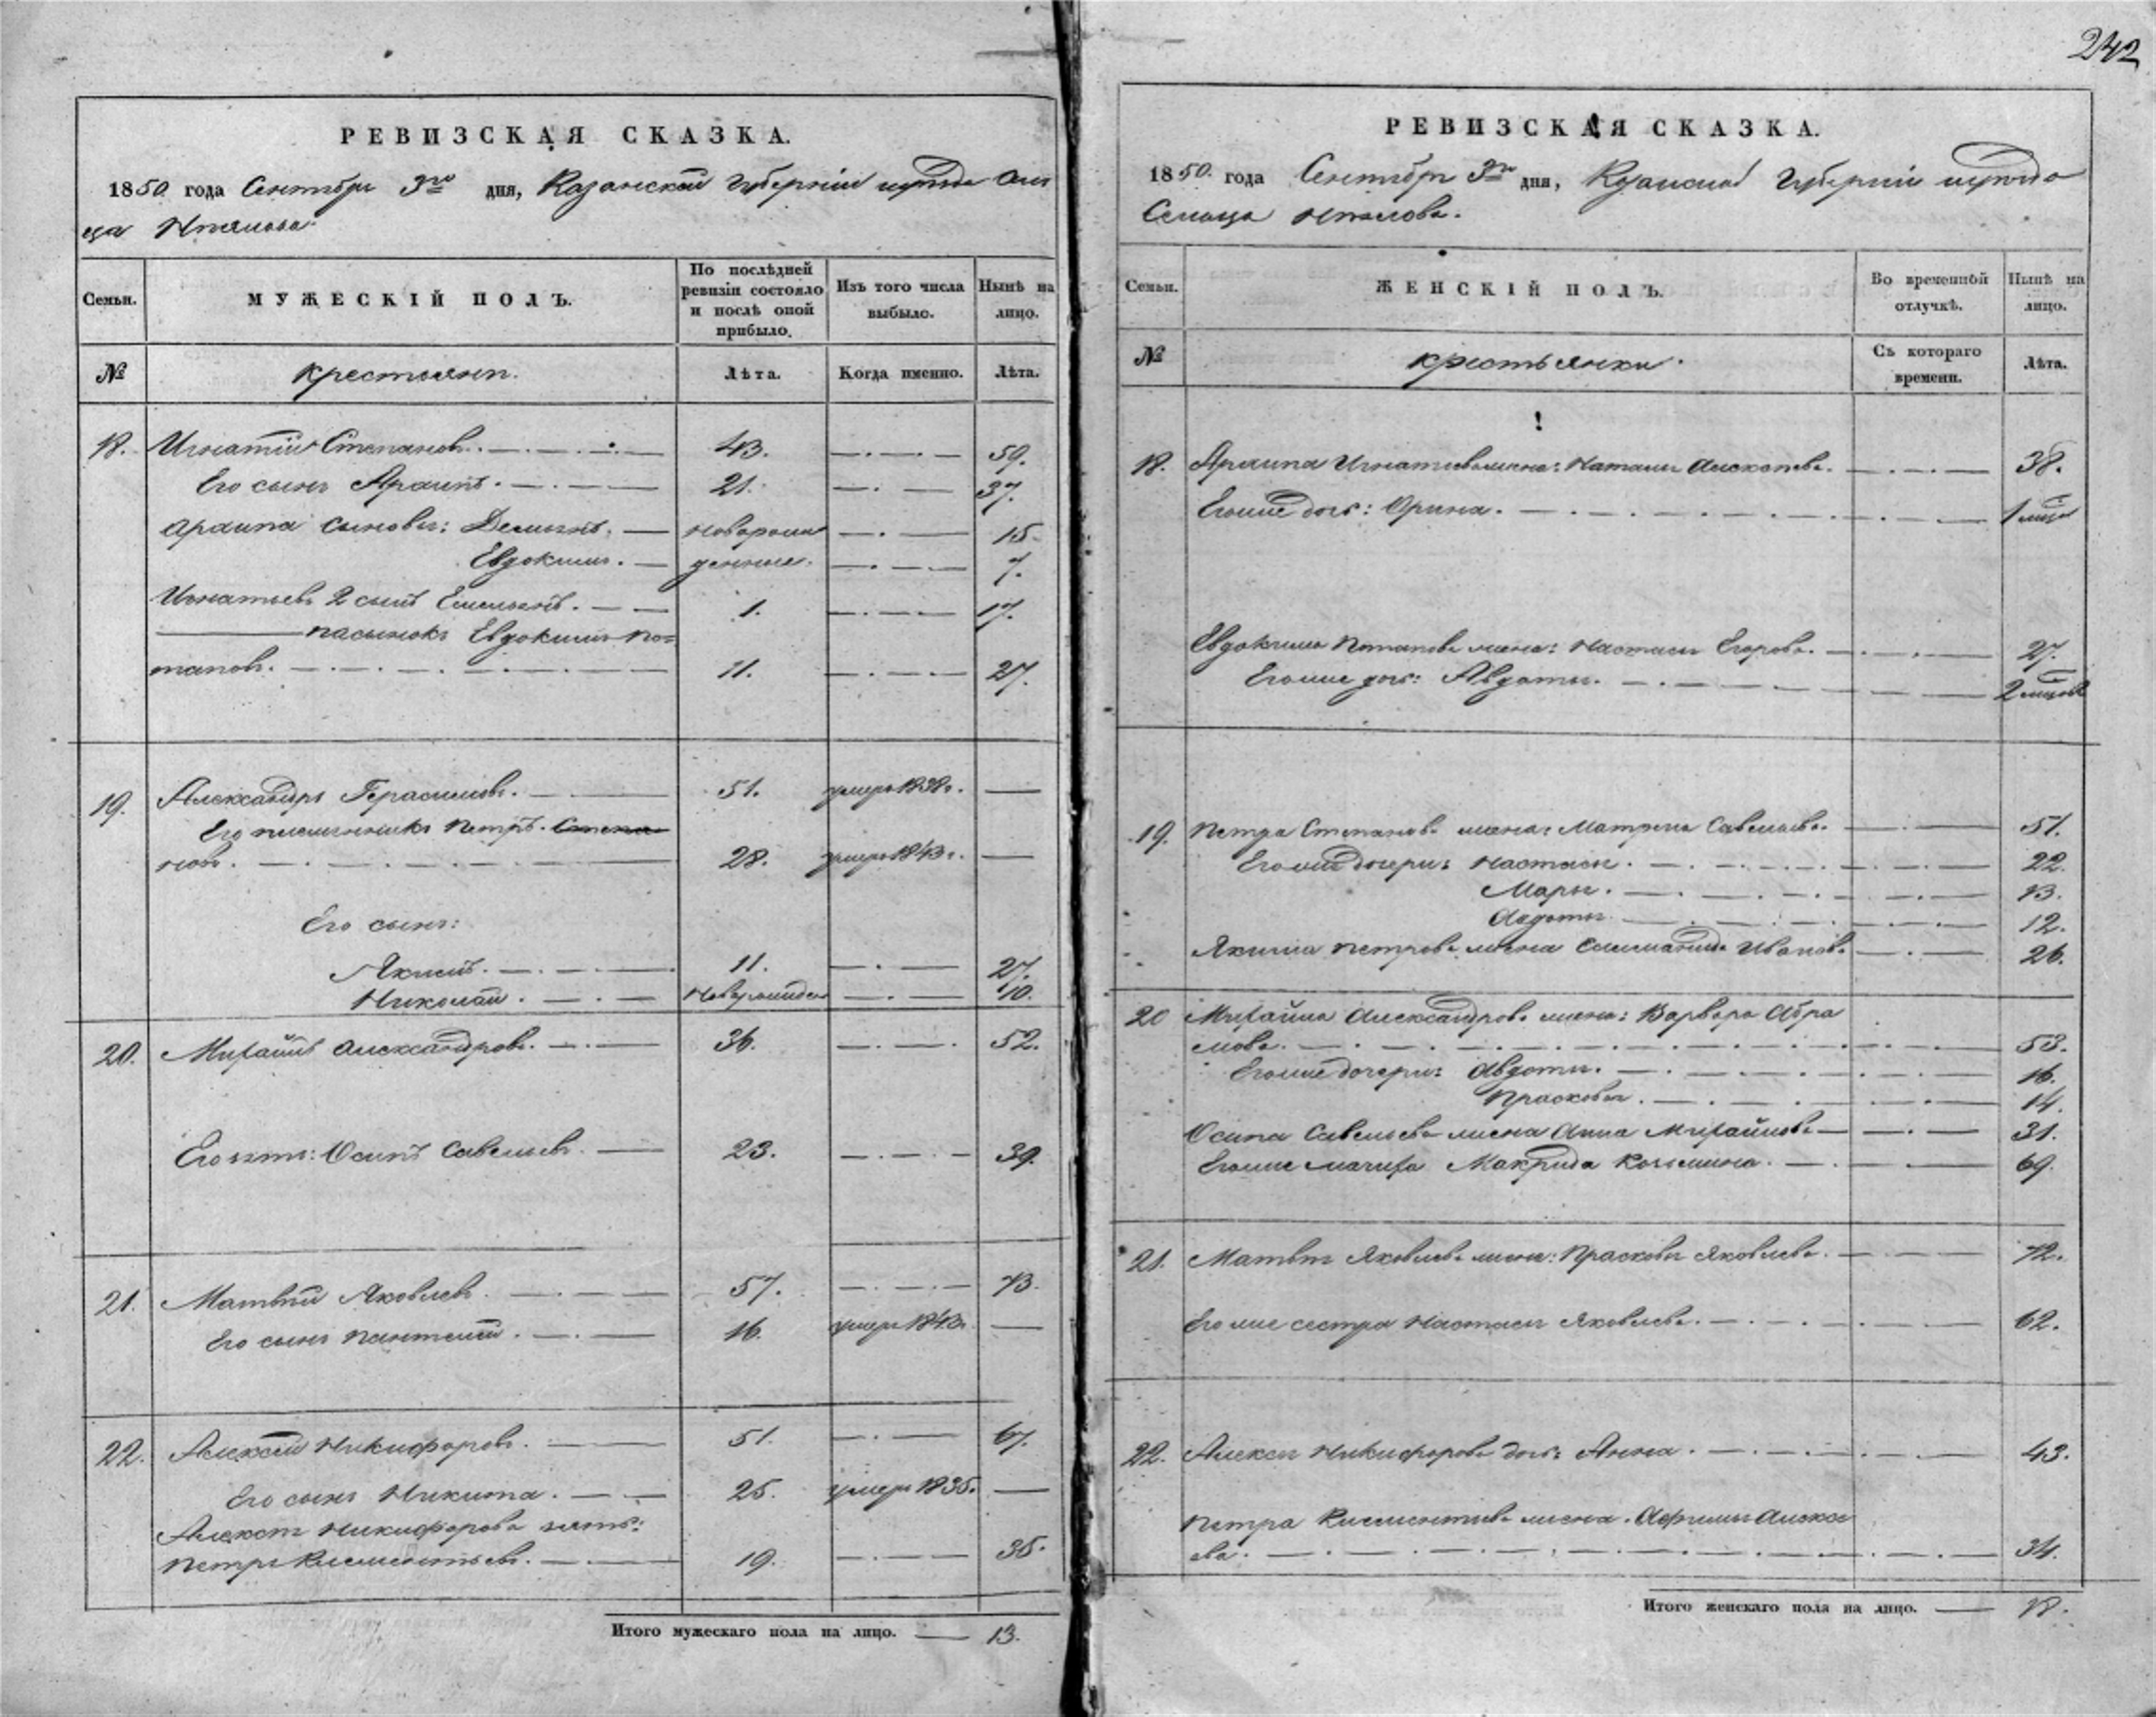 242
РЕВИЗСКАЯ СКАЗКА.
1850 года Сентября 3го дня, Казанской Губернии уезда Сель
ца
Семьи.
МУЖЕСКІЙ ПОЛЪ.
По послѣдней ревизіи состояло и послѣ оной прибыло.
Изъ того числа выбыло.
Нынѣ на лицо.
№
крестьяне.
Лѣта.
Когда именно.
Лѣта.
18. Игнатій Степановъ. 43. 59.
Его сынъ Архипъ. 21. 37.
Архипа сыновья: Демьянъ. новорож 15
Евдокимъ. денные. 7.
Игнатьевъ 2 сынъ Емельянъ. 1. 17.
пасынокъ Евдокимъ По=
таповъ. 11. 27.
19. Александръ Герасимовъ. 51. умеръ 1838 г.
Его племянникъ Петръ Степа
новъ. 28. умеръ 1843 г.
Его сынъ:
Якимъ. 11. 27.
Николай. Новорожден 10.
20. Михайлъ Александровъ. 36. 52.
Его зять: Осипъ Савельевъ. 23. 39.
21. Матвѣй Яковлевъ. 57. 73.
Его сынъ Пантелей. 16. умеръ 1843
22. Алексѣй Никифоровъ. 51. 67.
Его сынъ Никита. 25. умеръ 1835.
Алексѣя Никифорова зять:
Петръ Климентьевъ. 19. 35.
Итого мужескаго пола на лицо. 13.
РЕВИЗСКАЯ СКАЗКА.
1850 года Сентября 3го дня, Казанской Губерніи уезда
Сельца
Семьи.
ЖЕНСКІЙ ПОЛЪ.
Во временной отлучкѣ.
Нынѣ на лицо.
№
крестьянки.
Съ котораго времени.
Лѣта.
18. Архипа Игнатьева жена: Наталья 38.
Его же дочь: Орина. 1 мѣс
Евдокима Потапова жена: Настасья Егорова. 27.
Его же дочь: Авдотья. 2 мѣсяц
19. Петра Степанова жена: Матрена Савельева. 51.
Его же дочери: Настасья. 22.
Марья. 13.
Авдотья. 12.
Якима Петрова жена Иванова 26.
20 Михайла Александрова жена: Варвара Абра
мова. 53.
Его же дочери: Авдотья. 16.
Прасковья. 14.
Осипа Савельева жена Анна Михайлова 31.
Его же мачиха Макрида Козьмина. 69.
21. Матвѣя Яковлева жена: Прасковья Яковлева. 72.
Его же сестра Настасья Яковлева. 62.
22. Алексѣя Никифорова дочь: Анна. 43.
Петра Климентьева жена. Афимья Алексѣ
ева. 34.
Итого женскаго пола на лицо. 18.